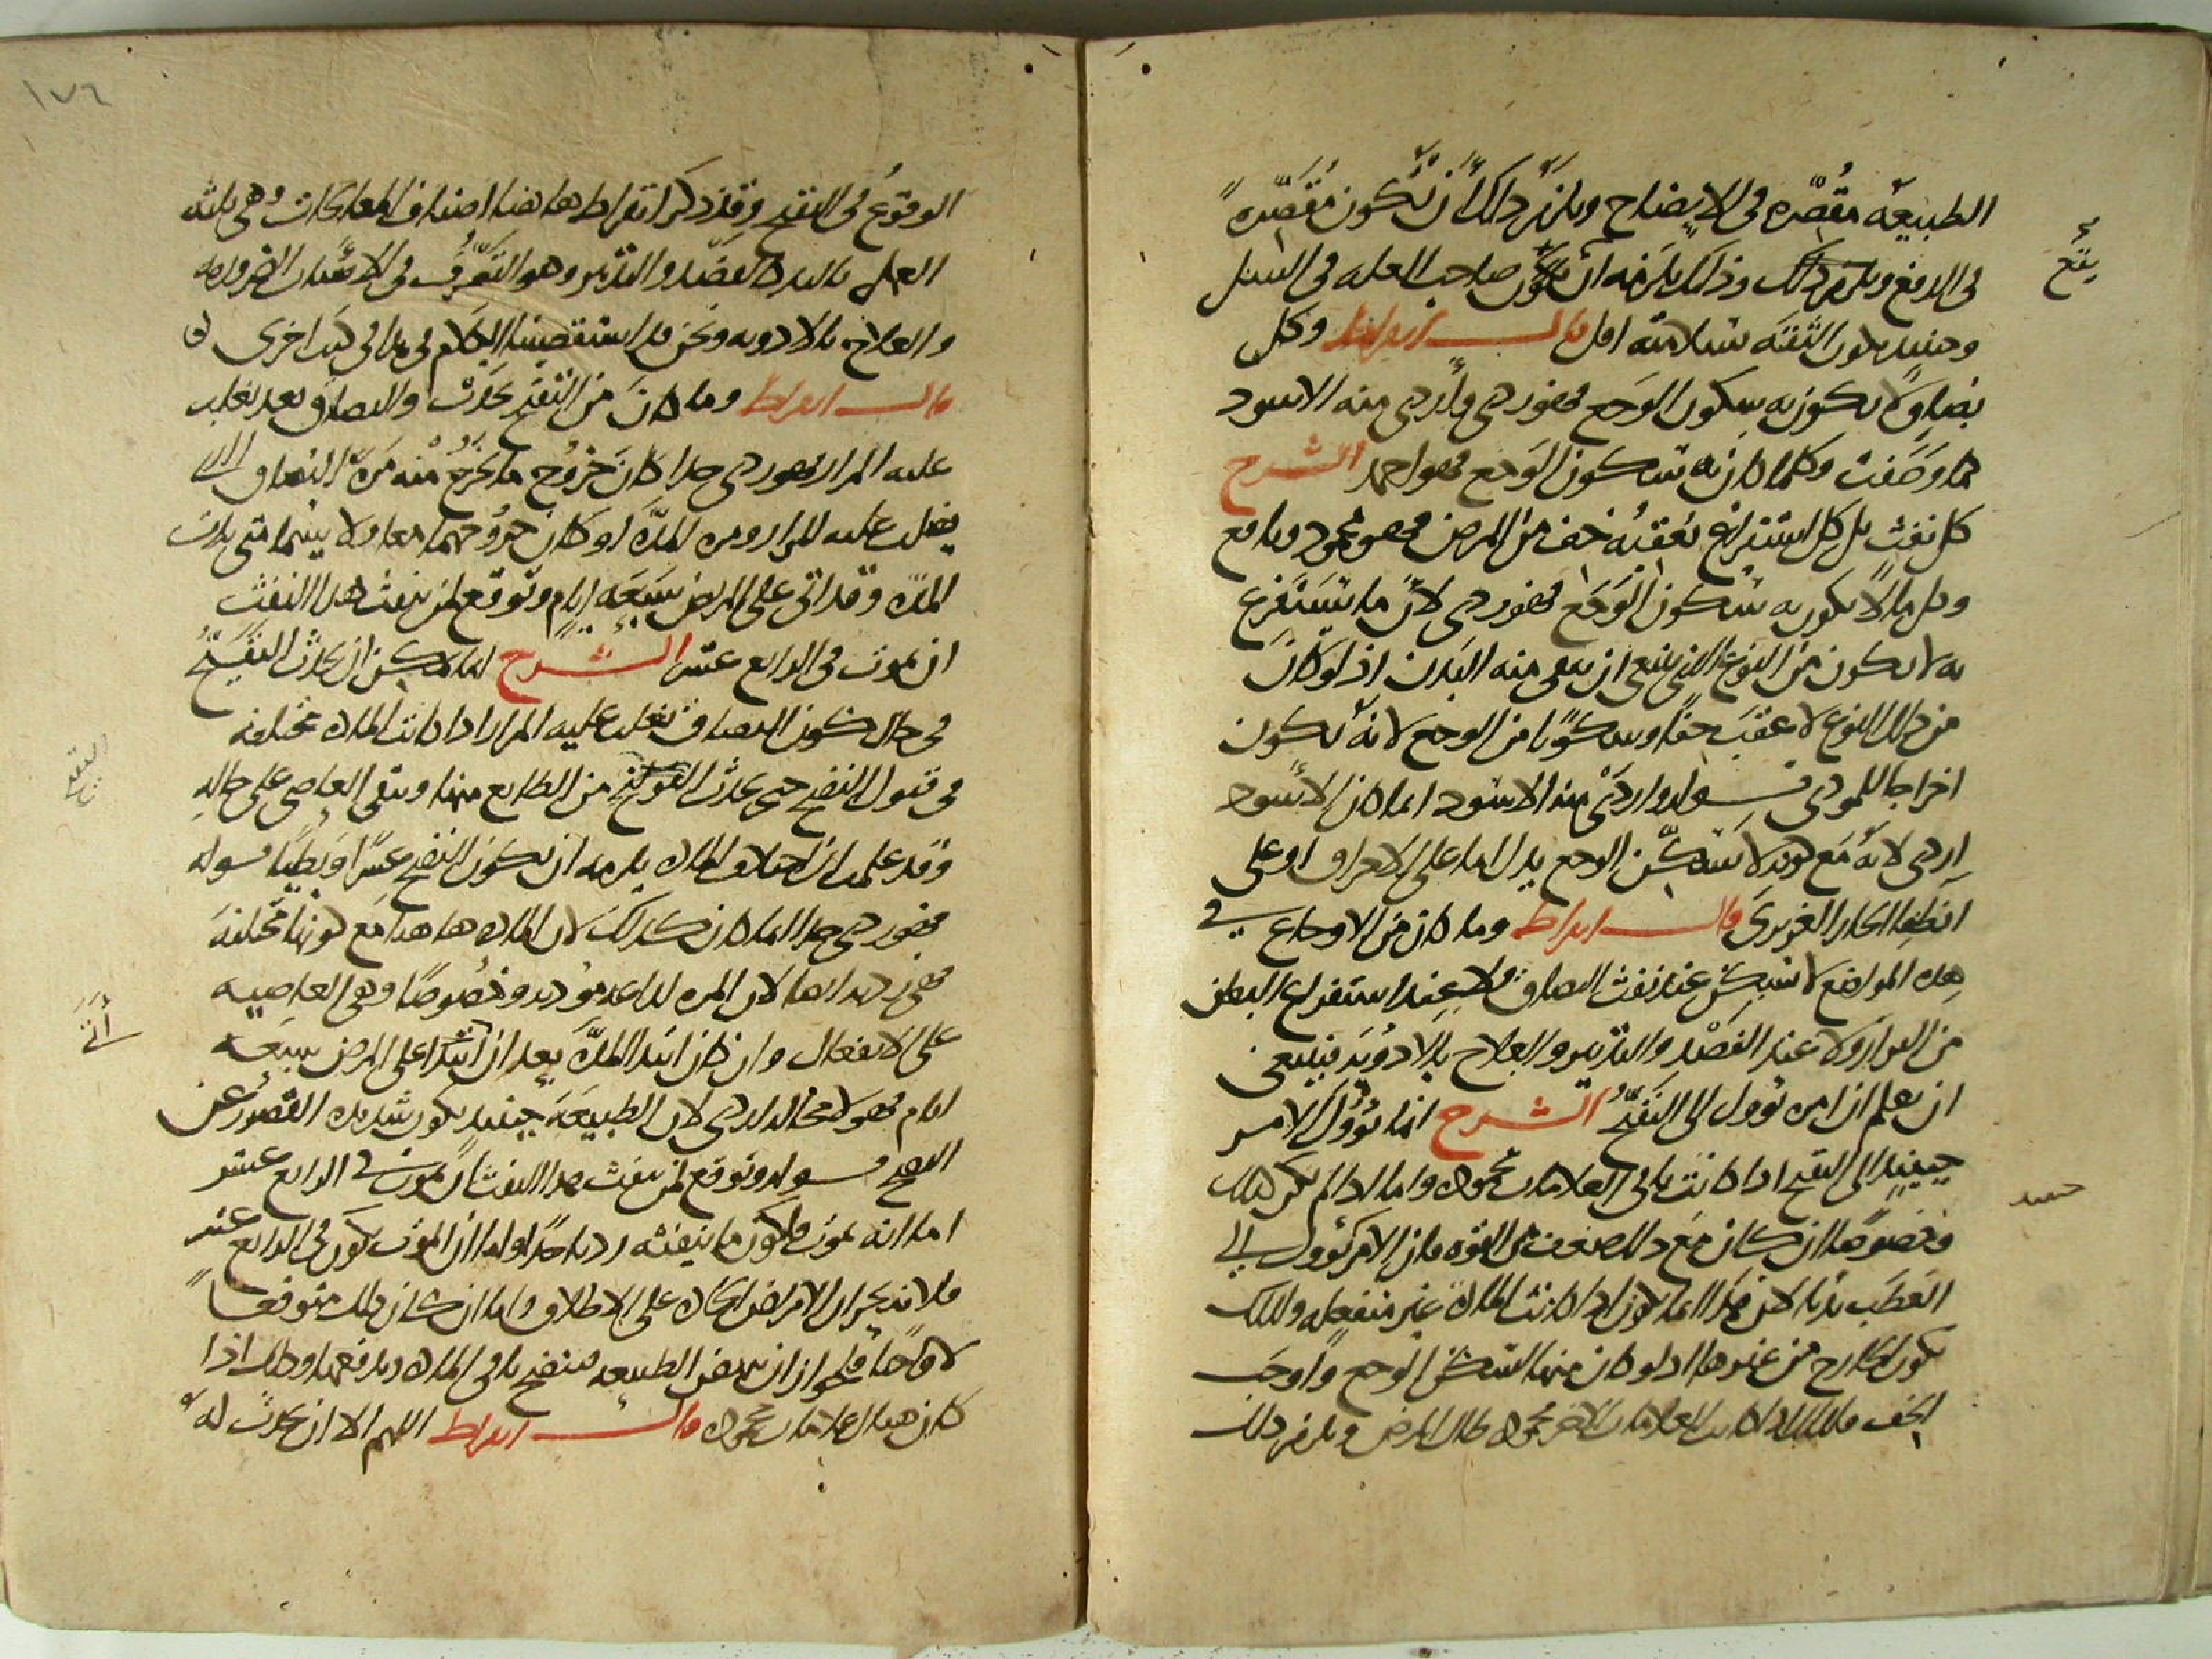 الطبيعة مقصرة فى الإيضاح ويلزم ذلك أن تكون مقصرة
فى الدفع ويلزم ذلك وذلك يلزمه أن يكون صاحب العلة فى السل
وحينيد يكون الثقة بسلامته اقل قال ابقراط وكل
بصاق لا يكون به سكون الوجع فهو ردى وأردى منه الاسود
كما وصفت وكلما كان به سكون الوجع فهو احمد الشرح
كل نفث بل كل استفراغ يعقبه خف من المرض فهو محمود ونافع
وكل ما لا يكون به سكون الوجع فهو ردى لأن ما يستفرغ
به لا يكون من النوع الذى ينبغى ان ينقى منه البدن اذ لو كان
من ذلك النوع لاعقب خفا وسكونا من الوجع لانه يكون
اخراجا للموذى قوله واردى منه الاسود انما كان الاسود
اردى لانه مع كونه لا يسكن الوجع يدل اما على الاحراق او على
انطفا الحار الغريزى قال ابقراط وما كان من الاوجاع فى
هذه المواضع لا يسكن عند نفث البصاق ولا عند استفراغ البطن
من البراز ولا عند الفصد والتدبير والعلاج بالادوية فينبغى
ان يعلم ان امره يوول الى التقيح الشرح انما يوول الامر
حينيذ الى التقيح اذا كانت باقى العلامات محمودة واما اذا لم تكن كذلك
وخصوصا ان كان مع ذلك ضعف من القوة فان الامر يوول الى
العطب لان هذا انما يكون اذا كانت المادة غير منفعلة ولذلك
يكون الخارج من غيرها اذ لو كان منها لسكن الوجع واوجب
الخف فلذلك اذا كانت العلامات الاخر محمودة طال المرض ويلزم ذلك
يتح
حينيد
١٧٦
الوقوع فى التقيح وقد ذكر ابقراط هاهنا اصناف المعالجات وهى ثلثة
العمل باليد كالفصد والتدبير وهو التصرف فى الاسباب الضرورية
والعلاج بالادوية ونحن قد استقصينا الكلام فى هذا فى كتب اخرى
قال ابقراط وما كان من التقيح يحدث والبصاق بعد يغلب
عليه المرار فهو ردى جدا كان خروج ما يخرج منه مرة البصاق الذى
يغلب عليه المرار ومرة المدة او كان خروجهما معا ولا سيما متى بدت
المدة وقد اتى على المريض سبعة ايام وتوقع لمن ينفث هذا النفث
ان يموت فى الرابع عشر الشرح انما يمكن ان يحدث التقيح
فى حال كون البصاق يغلب عليه المرار اذا كانت المادة مختلفة
فى قبول النضج حتى يحدث التقيح من الطايع منها ويبقى العاصى على حاله
وقد علمت ان اختلاف المادة يلزمه ان يكون النضج عسرا وبطيا قوله
فهو ردى جدا انما كان كذلك لان المادة هاهنا مع كونها مختلفة
فهى ردية ايضا لان المرة لذاعة موذية وخصوصا وهى العاصية
على الانفعال وان كان ابتدا المدة بعد ان اتى على المرض سبعة
ايام فهو لا محالة ردى لان الطبيعة حينيذ يكون شديدة القصور عن
النضج قوله وتوقع لمن ينفث هذا النفث ان يموت فى الرابع عشر
اما انه يموت فلكون ما ينفثه رديا جدا واما ان الموت يكون فى الرابع عشر
فلانه بحران الامراض الحادة على الاطلاق وانما كان ذلك متوقعا
لا واجبا فلجواز ان تنهض الطبيعة فتنضج باقى المادة وتدفعها وذلك اذا
كان هناك علامات محمودة قال ابقراط اللهم الا ان يحدث له
التقيح
أتى